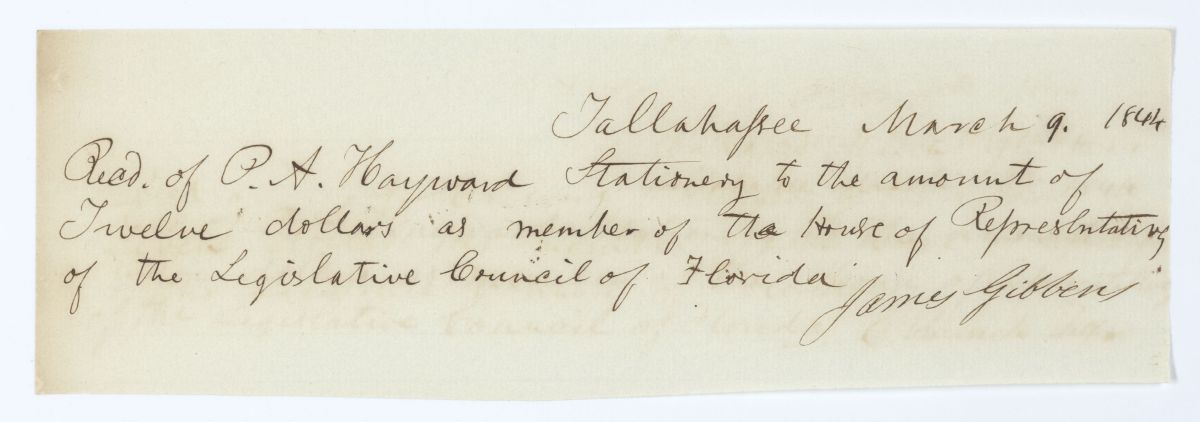 Tallahassee March 9. 1844
Recd. of P. A. Hayward Stationery to the amount of
Twelve dollars as member of the House of Representatives
of the Legislative Council of Florida
James Gibbens